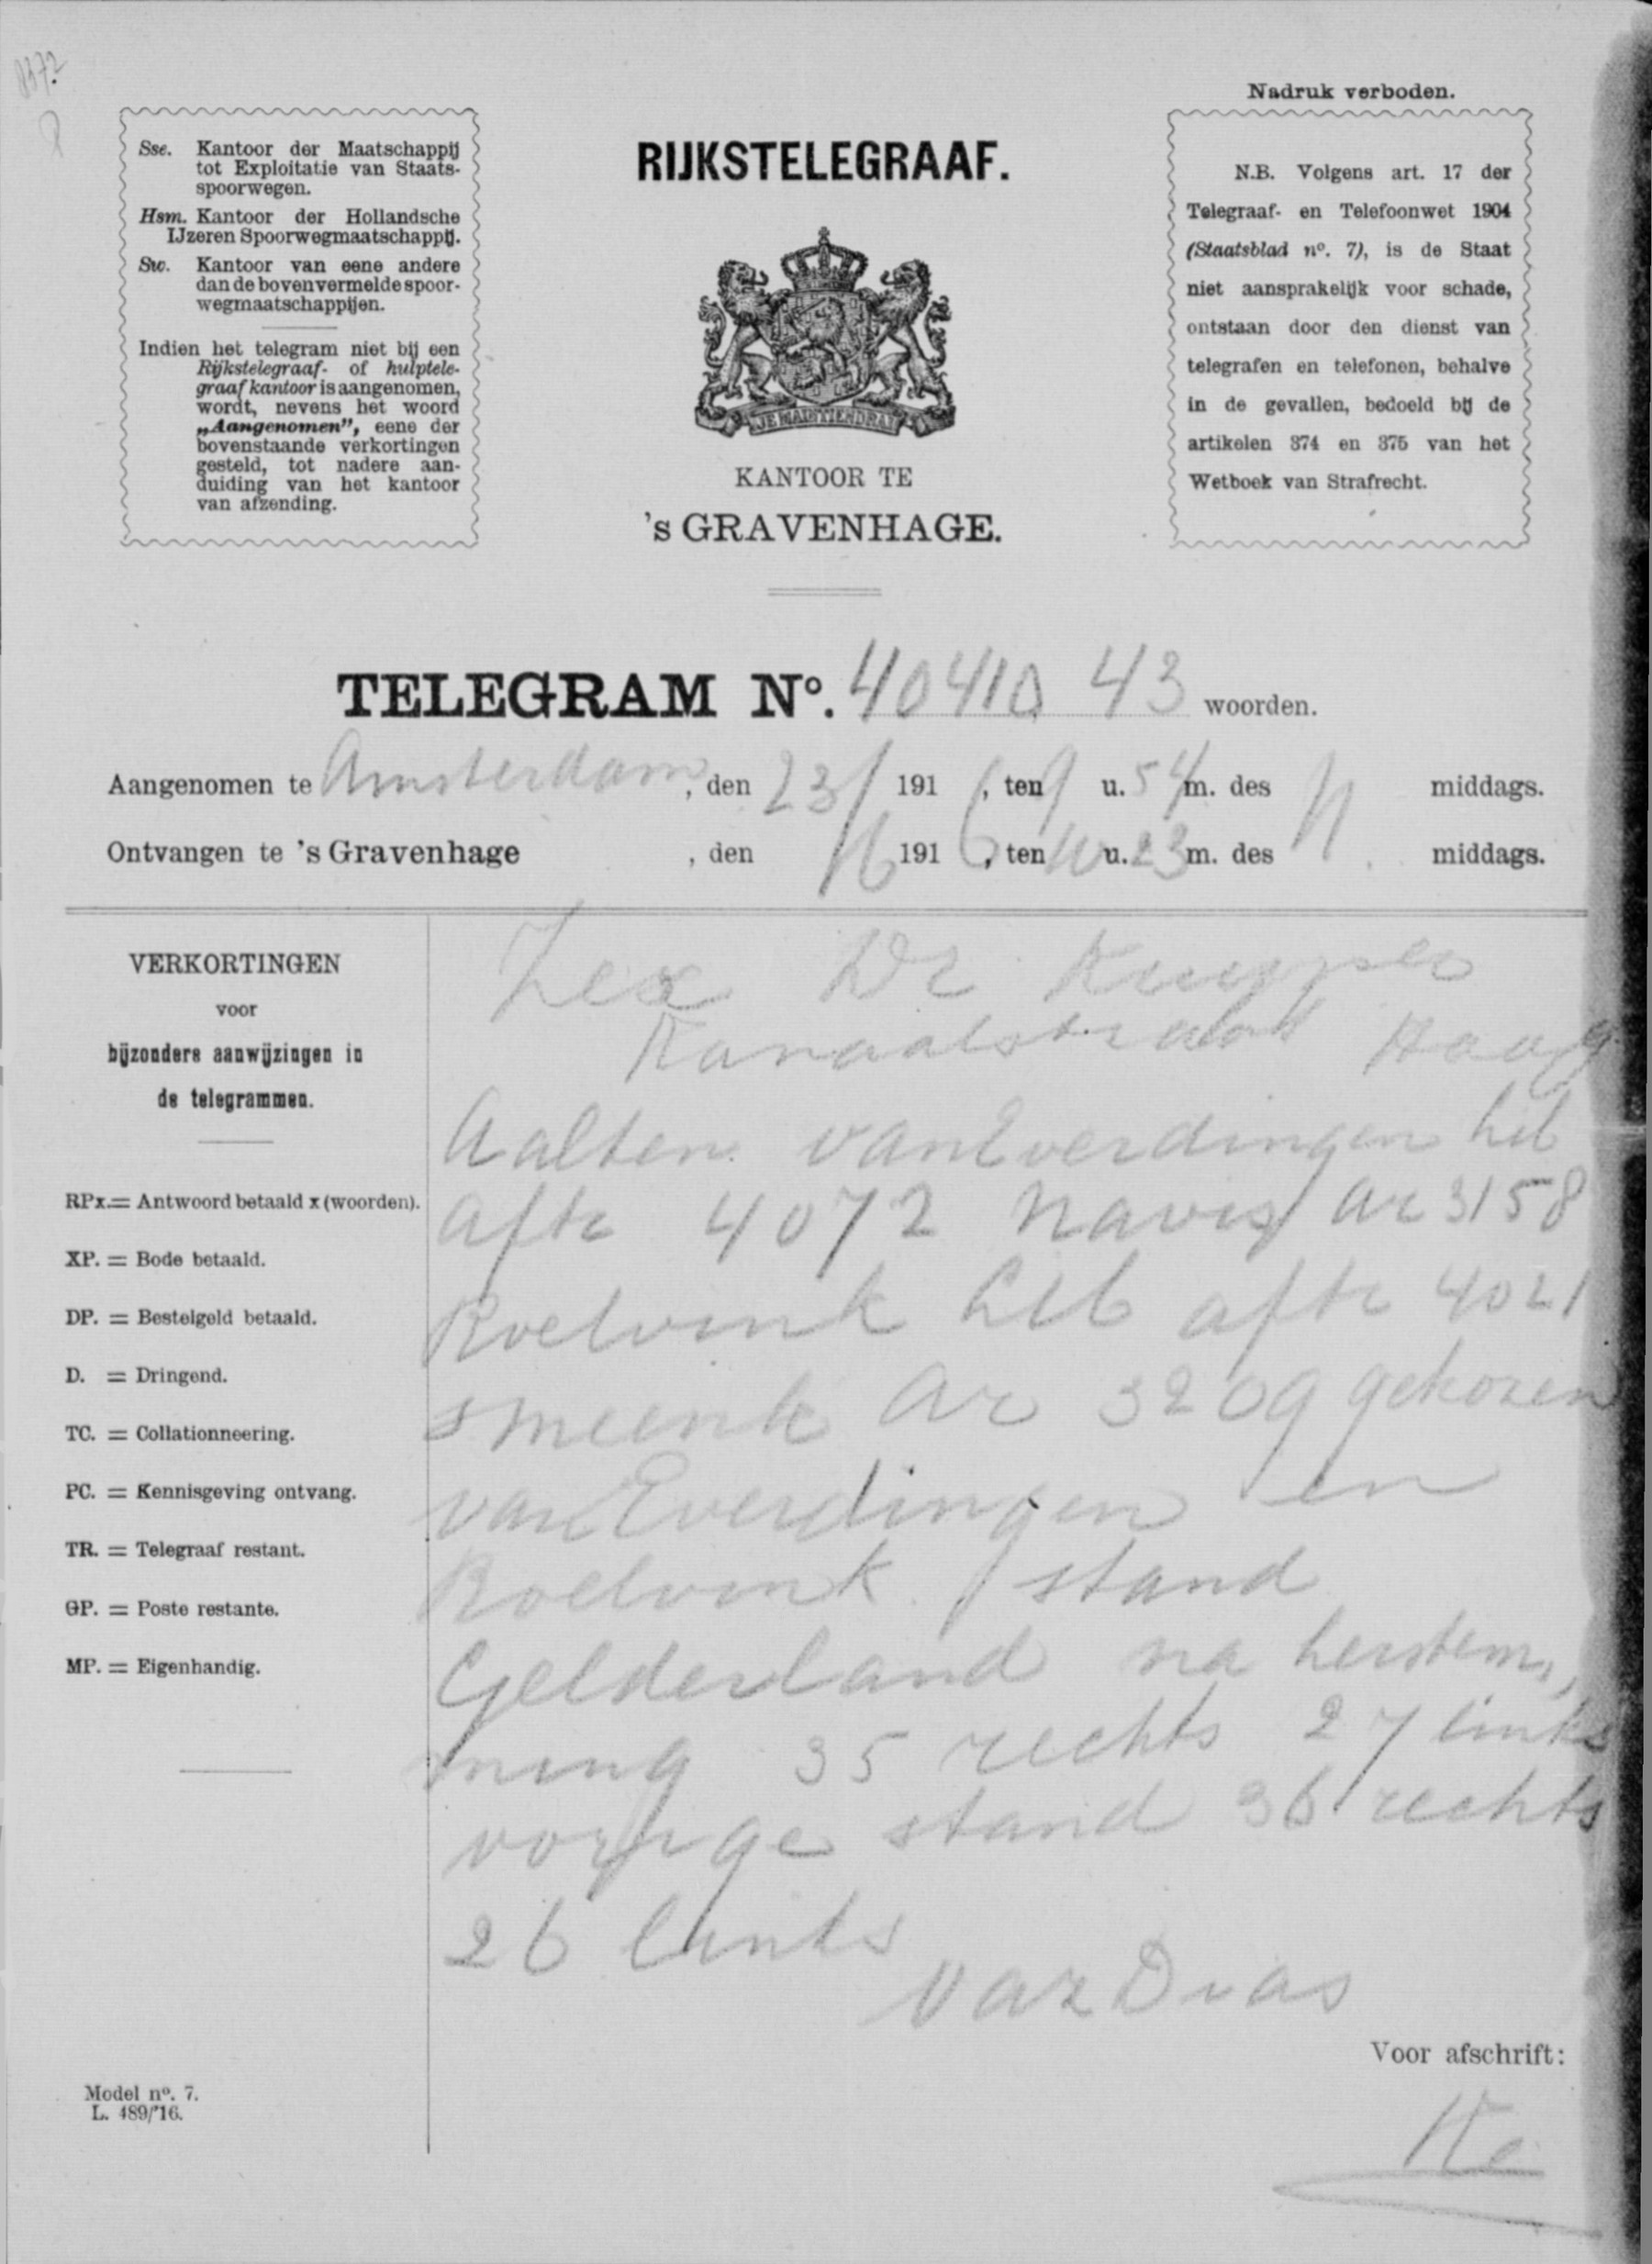 8372
Nadruk verboden.
Sse. Kantoor der Maatschappij
tot Exploitatie van Staats-
spoorwegen.
Hsm. Kantoor der Hollandsche
IJzeren Spoorwegmaatschappij.
Sw. Kantoor van eene andere
dan de bovenvermelde spoor-
wegmaatschappijen.
Indien het telegram niet bij een
Rijkstelegraaf- of hulptele-
graafkantoor is aangenomen,
wordt, nevens het woord
„Aangenomen”, eene der
bovenstaande verkortingen
gesteld, tot nadere aan-
duiding van het kantoor
van afzending.
RIJKSTELEGRAAF.
JE MAINTIENDRAI
KANTOOR TE
's GRAVENHAGE.
N.B. Volgens art. 17 der
Telegraaf- en Telefoonwet 1904
(Staatsblad nº. 7), is de Staat
niet aansprakelijk voor schade,
ontstaan door den dienst van
telegrafen en telefonen, behalve
in de gevallen, bedoeld bij de
artikelen 374 en 375 van het
Wetboek van Strafrecht.
TELEGRAM Nº. 40410 43 woorden.
Aangenomen te Amsterdam, den 23/ 191 6, ten 9 u. 54 m. des N middags.
Ontvangen te 's Gravenhage , den /6 191 6, ten 10 u. 23 m. des N middags.
VERKORTINGEN
voor
bijzondere aanwijzingen in
de telegrammen.
RPx.= Antwoord betaald x (woorden).
XP. = Bode betaald.
DP. = Bestelgeld betaald.
D. = Dringend.
TC. = Collationneering.
PC. = Kennisgeving ontvang.
TR. = Telegraaf restant.
GP. = Poste restante.
MP. = Eigenhandig.
Zex Dr Kuyper
Kanaalstraat Haag
Aalten vanEverdingen lib
aftr 4072 Navis ar 3158
Roelvink lib aftr 4021
smeenk ar 3209 gekozen
vanEverdingen en
Roelvink / stand
Gelderland na herstem,
ming 35 rechts 27 links
vorige stand 36 rechts
26 links
VazDias
Voor afschrift:
Ke
Model nº. 7.
L. 489/'16.